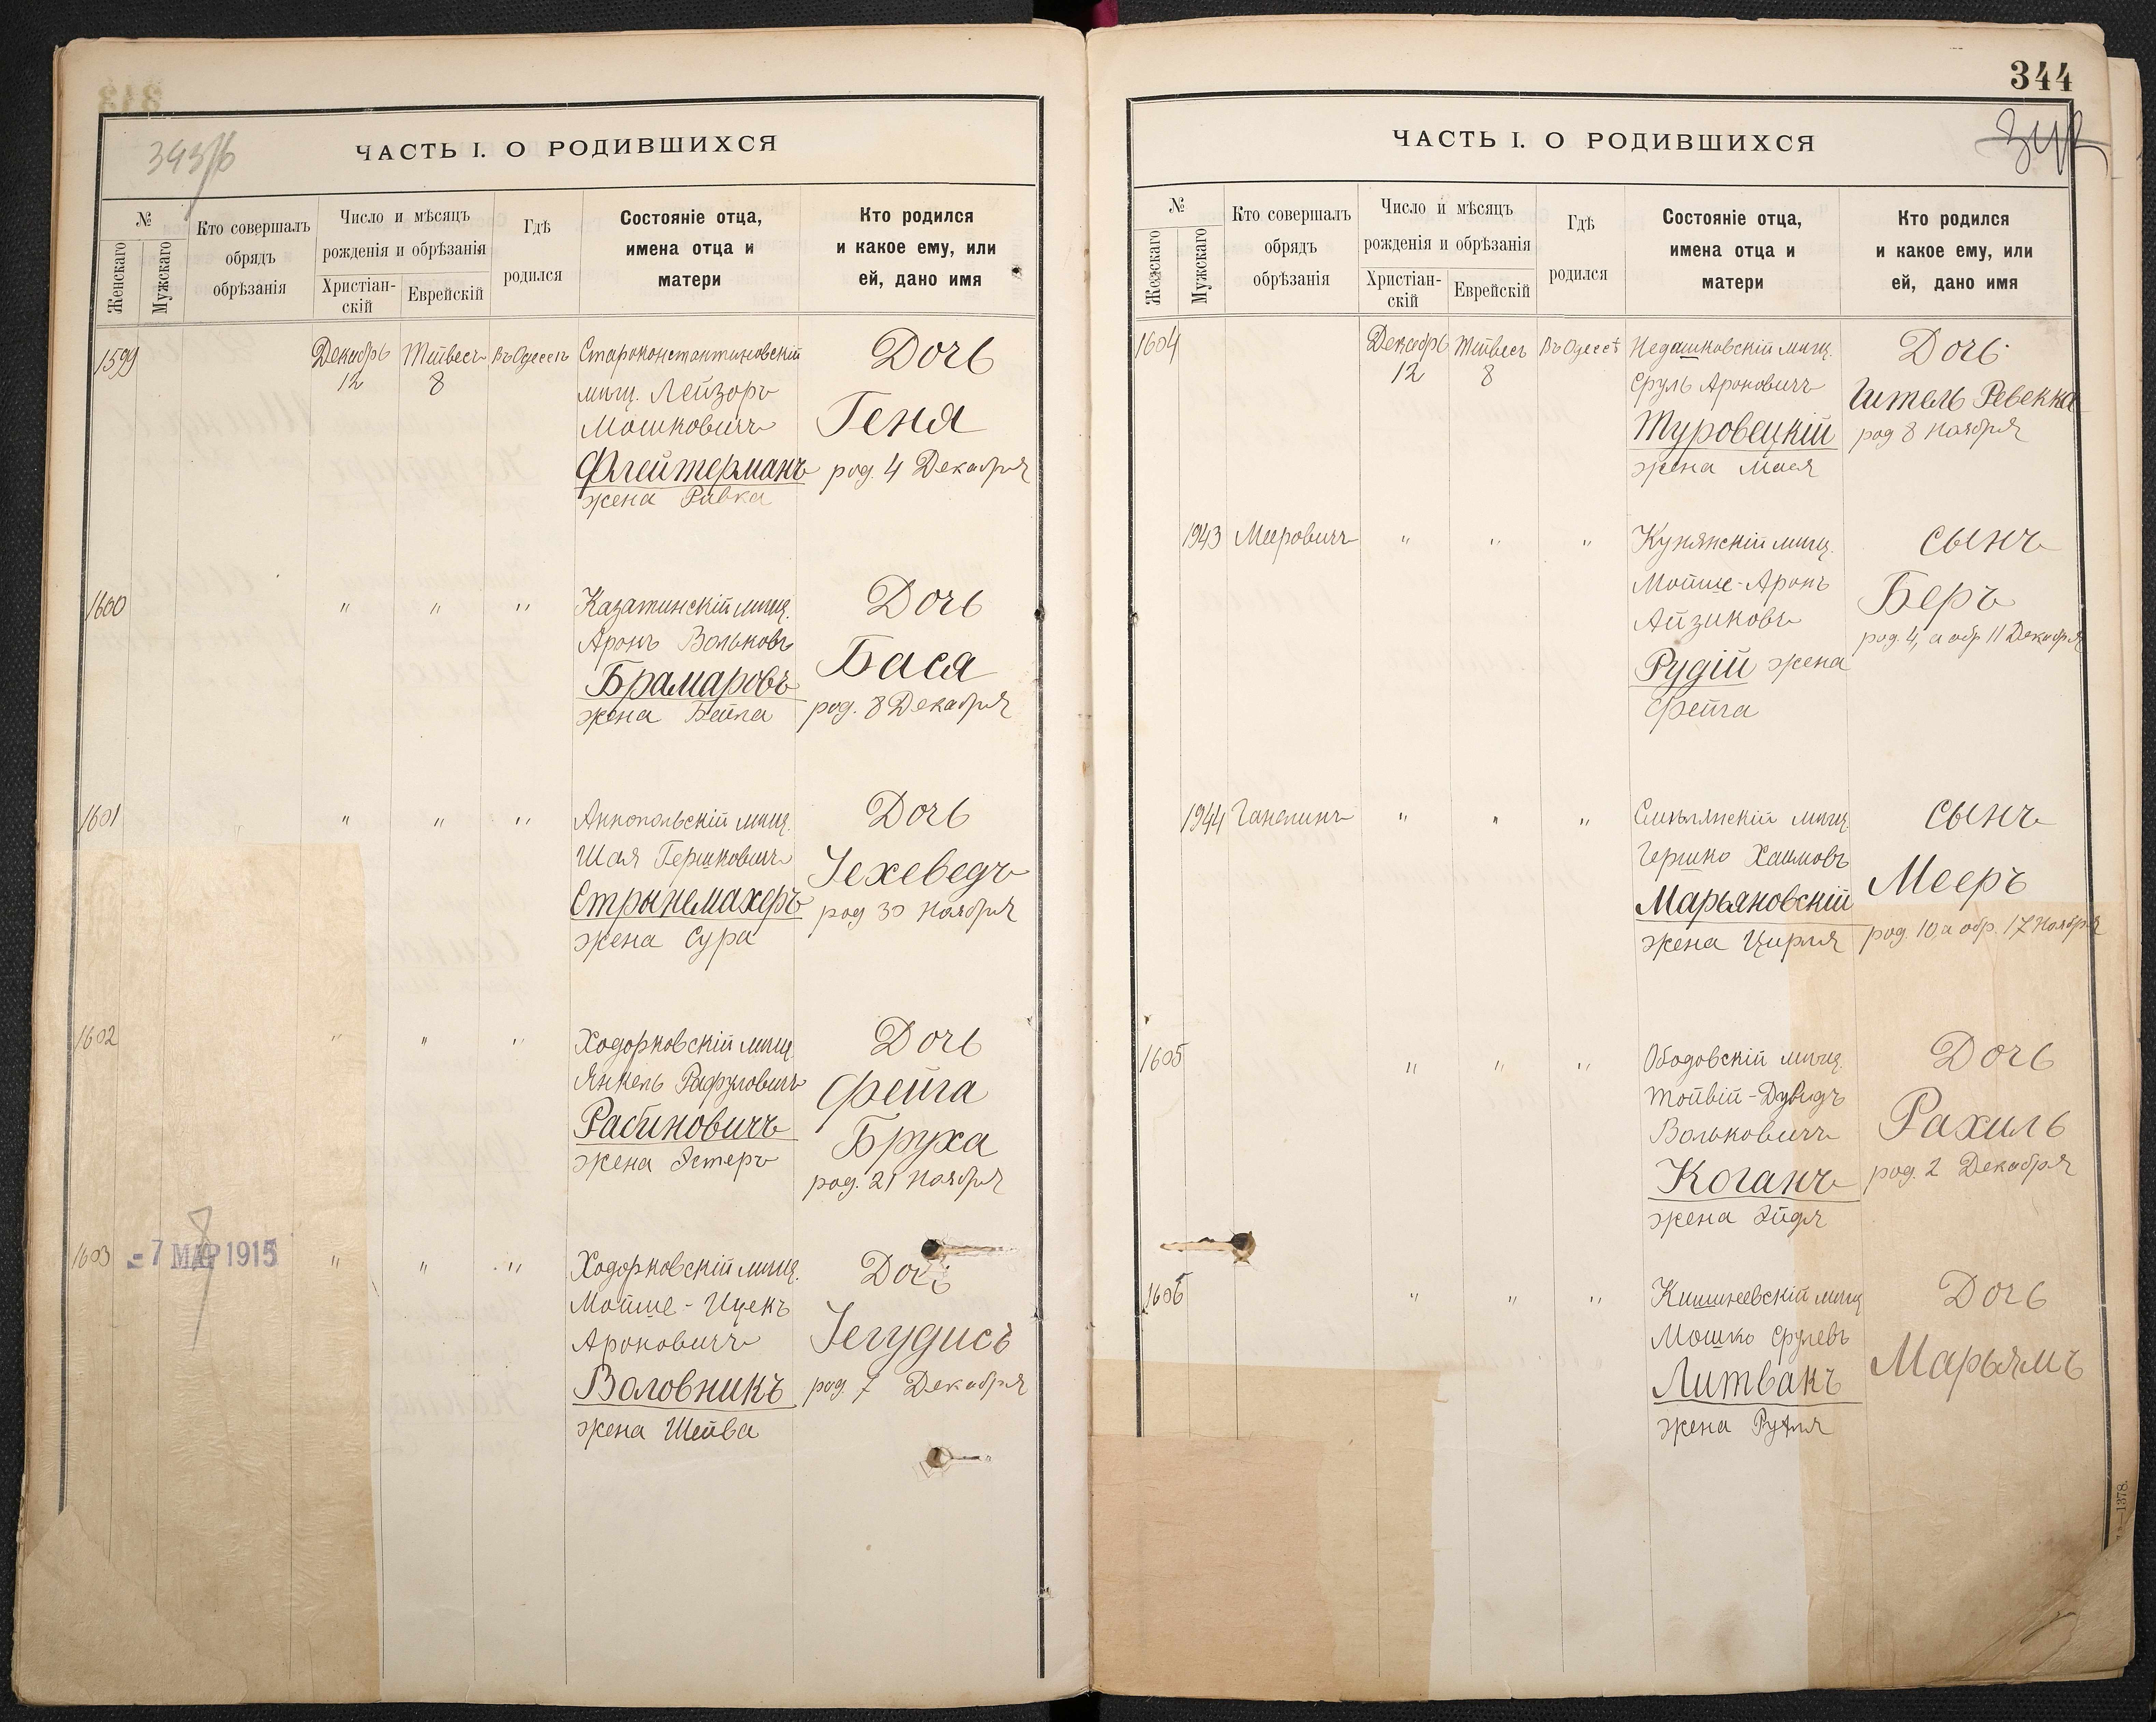 343/б
ЧАСТЬ I. О РОДИВШИХСЯ
№
Женскаго
Мужскаго
Кто совершалъ
обрядъ
обрѣзанія
Число и мѣсяцъ
рожденія и обрѣзанія
Христіан-
скій
Еврейскій
Гдѣ
родился
Состояніе отца,
имена отца и
матери
Кто родился
и какое ему, или
ей, дано имя
1599
Декабрь
12
Тейвесъ
8
Въ Одессѣ
Староконстантиновскій
мѣщ. Лейзоръ
Мошковичъ
Флейтерманъ
жена Ривка
Дочь
Геня
род. 4 Декабря
1600
" " "
Казатинскій мѣщ.
Аронъ Вольковъ
Брамаровъ
жена Бейла
Дочь
Бася
род. 8 Декабря
1601
" " "
Аннопольскій мѣщ.
Шая Гершковичъ
Стрынемахеръ
жена Сура
Дочь
Іехеведъ
род 30 ноября
1602
" " "
Ходорковскій мѣщ
Янкель Рафуловичъ
Рабиновичъ
жена Эстеръ
Дочь
Фейга
Бруха
род. 21 ноября
1603
-7 МАР 1915
" " "
Ходорковскій мѣщ.
Мойше-Ицекъ
Ароновичъ
Воловникъ
жена Шейва
Дочь
Іегудисъ
род. 7 Декабря
344
ЧАСТЬ I. О РОДИВШИХСЯ
№
Женскаго
Мужскаго
Кто совершалъ
обрядъ
обрѣзанія
Число и мѣсяцъ
рожденія и обрѣзанія
Христіан-
скій
Еврейскій
Гдѣ
родился
Состояніе отца,
имена отца и
матери
Кто родился
и какое ему, или
ей, дано имя
1604
Декабрь
12
Тейвесъ
8
Въ Одессѣ
Недашковскій мѣщ.
Сруль Ароновичъ
Туровецкій
жена Мася
Дочь
Гитель Ревекка
род 8 ноября
1943
Мееровичъ
" " "
Кунянскій мѣщ.
Мойше-Аронъ
Айзиковъ
Рудій жена
Фейга
сынъ
Беръ
род. 4, а обр 11 Декабря
1944
Ганелинъ
" " "
Смѣлянскій мѣщ
Гершко Хаимовъ
Марьяновскій
жена Цирля
сынъ
Мееръ
род. 10, а обр. 17 ноября
1605
" " "
Ободовскій мѣщ.
Тойвій-Дувидъ
Вольковичъ
Коганъ
жена Эйдя
Дочь
Рахиль
род. 2 Декабря
1606
" " "
Кишиневскій мѣщ
Мошко Срулевъ
Литвакъ
жена
Дочь
Марьямъ